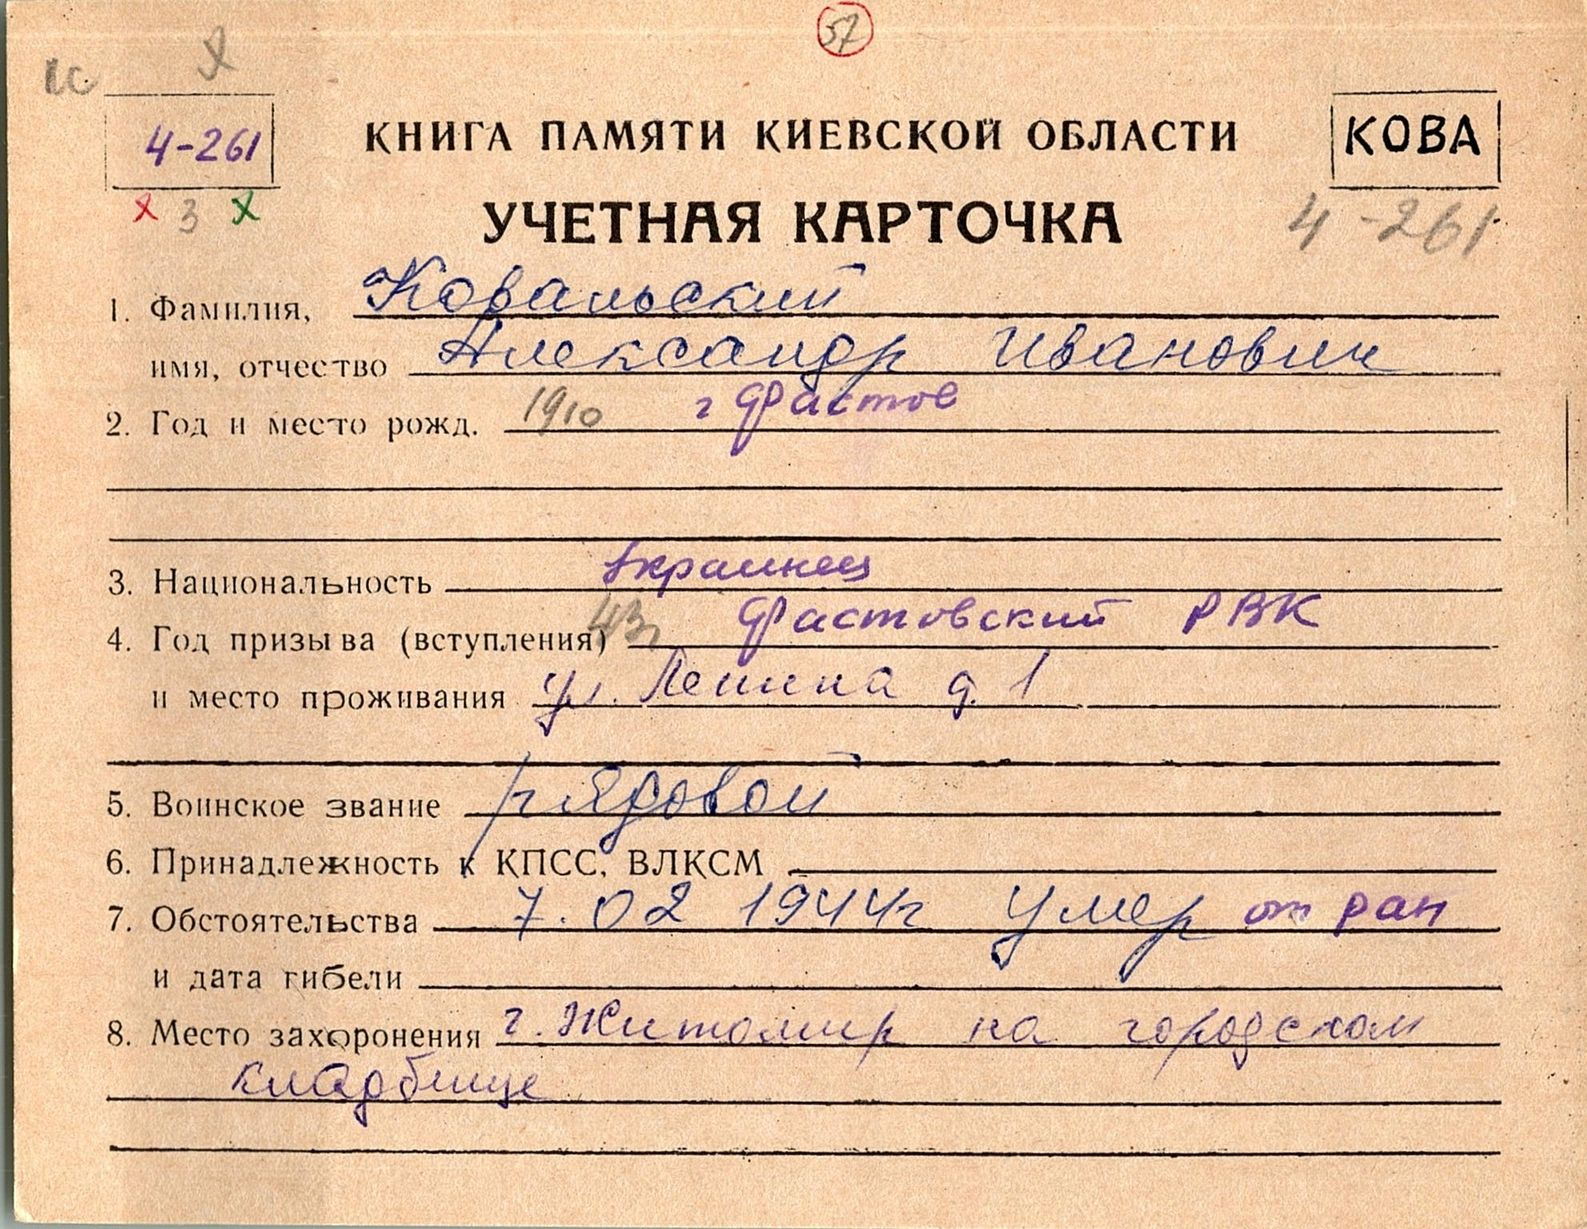 57
4-261
КНИГА ПАМЯТИ КИЕВСКОЙ ОБЛАСТИ
КОВА
х 3 х
УЧЕТНАЯ КАРТОЧКА
4-261
1. Фамилия, Ковальский
имя, отчество Александр Иванович
2. Год и место рожд. 1910 г Фастов
3. Национальность Украинец
4. Год призыва (вступления) 43г Фастовский РВК
и место проживания ул. Ленина д. 1
5. Воинское звание рядовой
6. Принадлежность к КПСС, ВЛКСМ
7. Обстоятельства 7. 02 1944г умер от ран
и дата гибели
8. Место захоронения г. Житомир на городском
кладбище